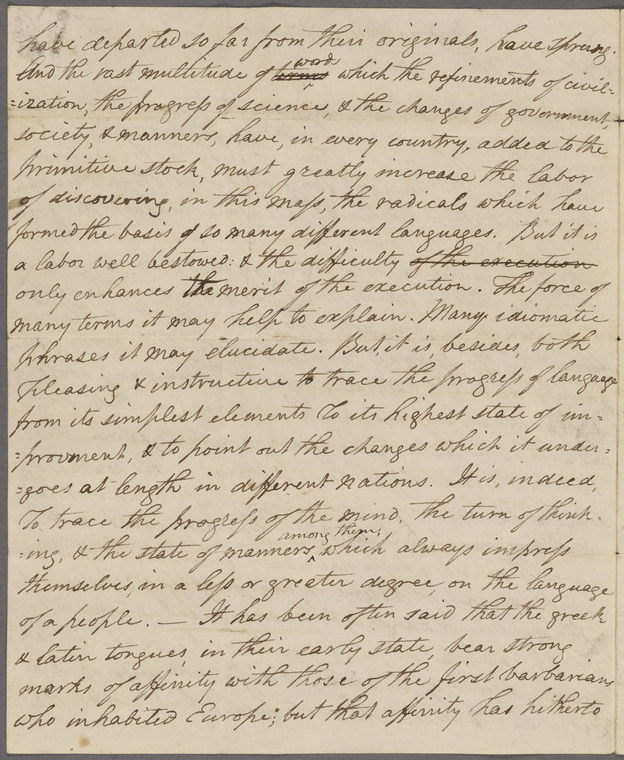 have departed so far from their originals, have sprung.
And the vast multitude of ~~terms~~ word which the refinements of civil-
=ization, the progress of science, & the changes of government,
society, & manners, have, in every country, added to the
primitive stock, must greatly increase the labor
of discovering, in this mass, the radicals which have
formed the basis of so many different languages. But it is
a labor well bestowed: & the difficulty ~~of the execution~~
only enhances the merit of the execution. The force of
many terms it may help to explain. Many idiomatic
phrases it may elucidate. But, it is, besides, both
pleasing & instructive to trace the progress of language
from its simplest elements to its highest state of im=
=provment, & to point out the changes which it under=
=goes at length in different nations. It is, indeed,
To trace the progress of the mind, the turn of think-
-ing, & the state of manners among them, which always impress
themselves, in a less or greater degree, on the language
of a people. — It has been often said that the greek
& latin tongues, in their early state, bear strong
marks of affinity with those of the first barbarians
who inhabited Europe; but that affinity has hitherto